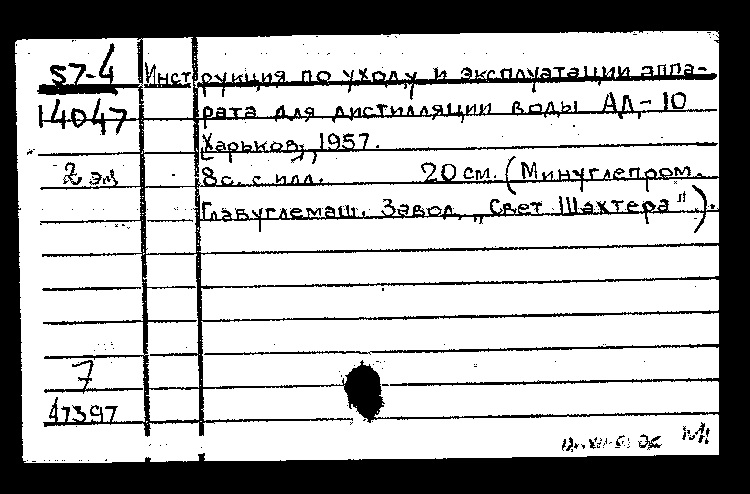 57-4 Инструкция по уходу и эксплуатации аппа-
14047 рата для дистилляции воды АД-10
Харьков, 1957.
2 эк 8 с. с илл. 20 см. (Минуглепром.
Главуглемаш. Завод „Свет Шахтера").
7
47397